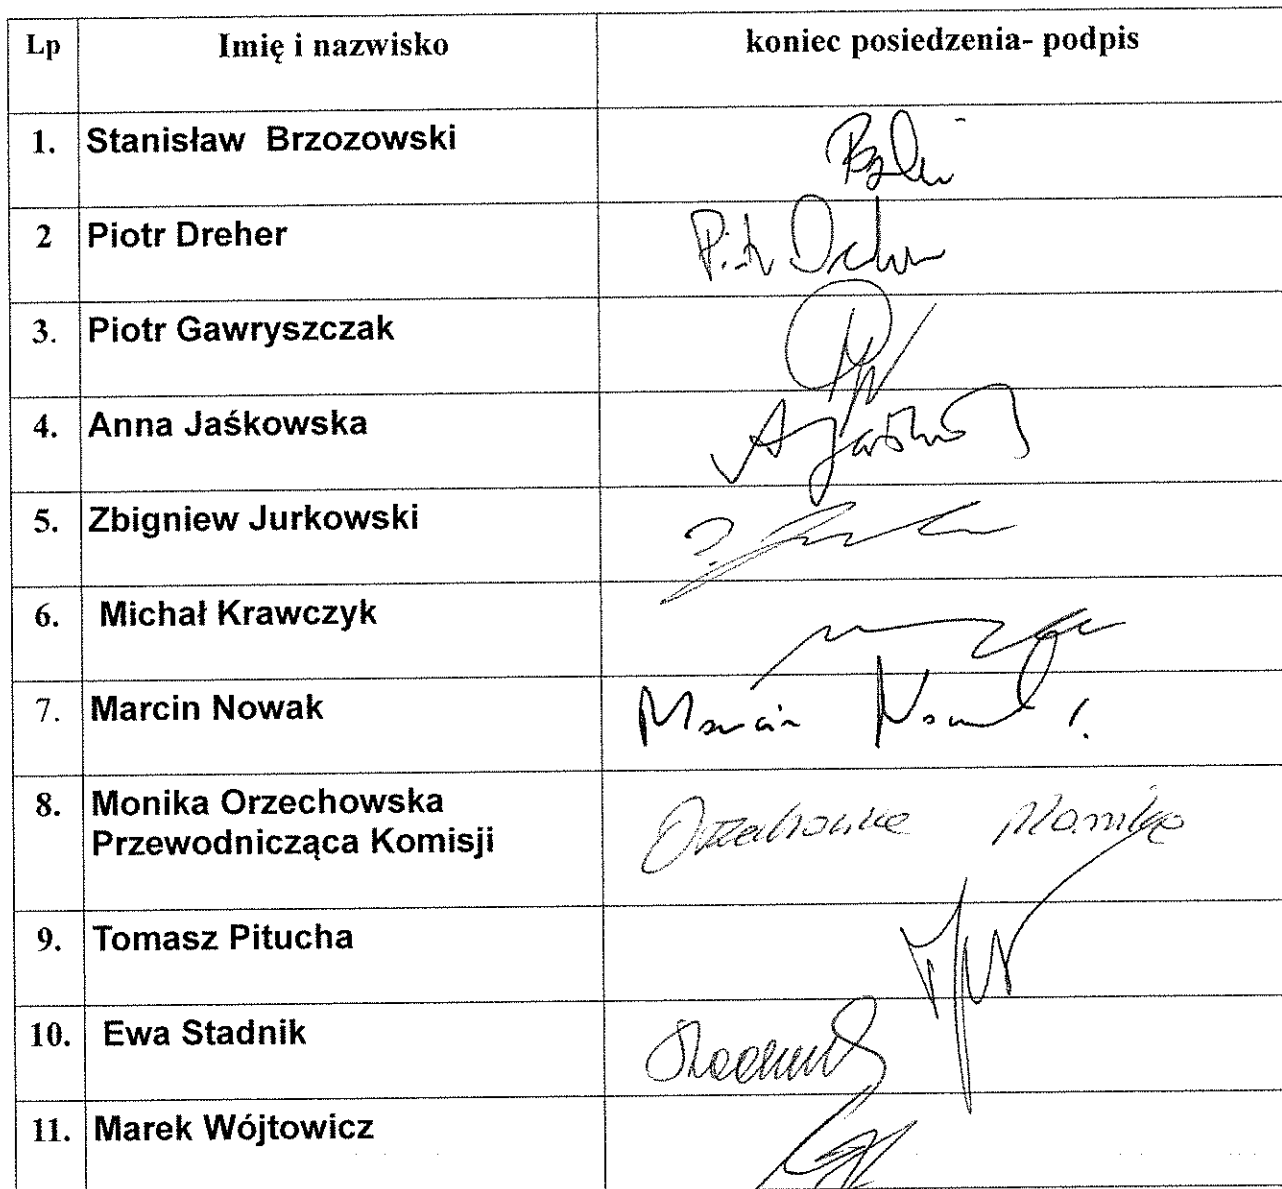 Lp Imię i nazwisko koniec posiedzenia- podpis
1. Stanisław Brzozowski
2 Piotr Dreher
3. Piotr Gawryszczak
4. Anna Jaśkowska
5. Zbigniew Jurkowski
6. Michał Krawczyk
7. Marcin Nowak Marcin Nowak
8. Monika Orzechowska Orzechowska Monika
Przewodnicząca Komisji
9. Tomasz Pitucha
10. Ewa Stadnik
11. Marek Wójtowicz